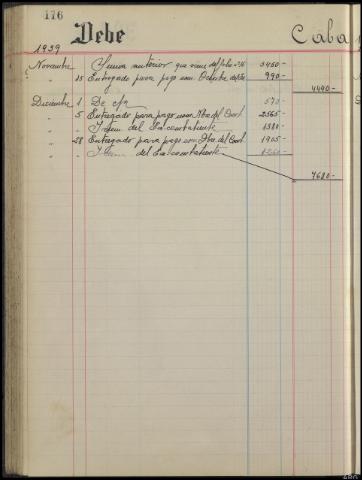 176
Debe Caba
1939
Noviembre Suma anterior que viene del folio 3450-
" 15 Entregado para pago nom Octubre 990-
4440-
Diciembre 1 De c/a 570-
" 5 Entregado para pago nom Nbre del Cont 2565-
" " Idem del Excombatiente 1380-
" 28 Entregado para pago nom Dbre del Cont 1905-
" " Idem del Excombatiente 1260-
7680-